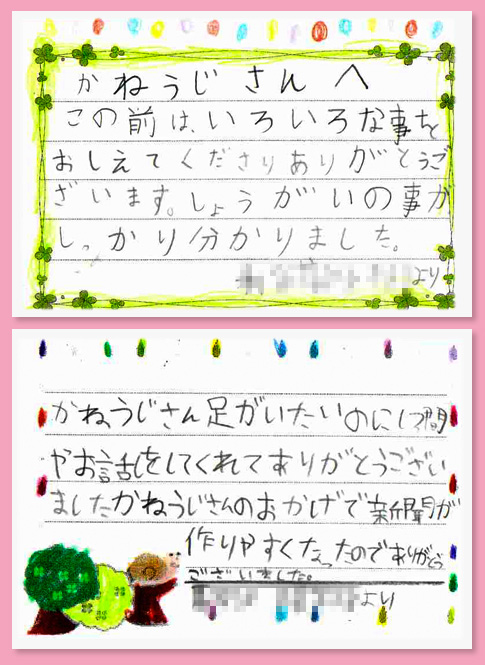 かねうじさんへ
この前は、いろいろな事を
おしえてくださりありがとうご
ざいます。しょうがいの事が
しっかり分かりました。
より
かねうじさん足がいたいのにしつ問
やお話しをしてくれてありがとうござい
ましたかねうじさんのおかげで新聞が
作りやすくなったのでありがとう
ございました。
より